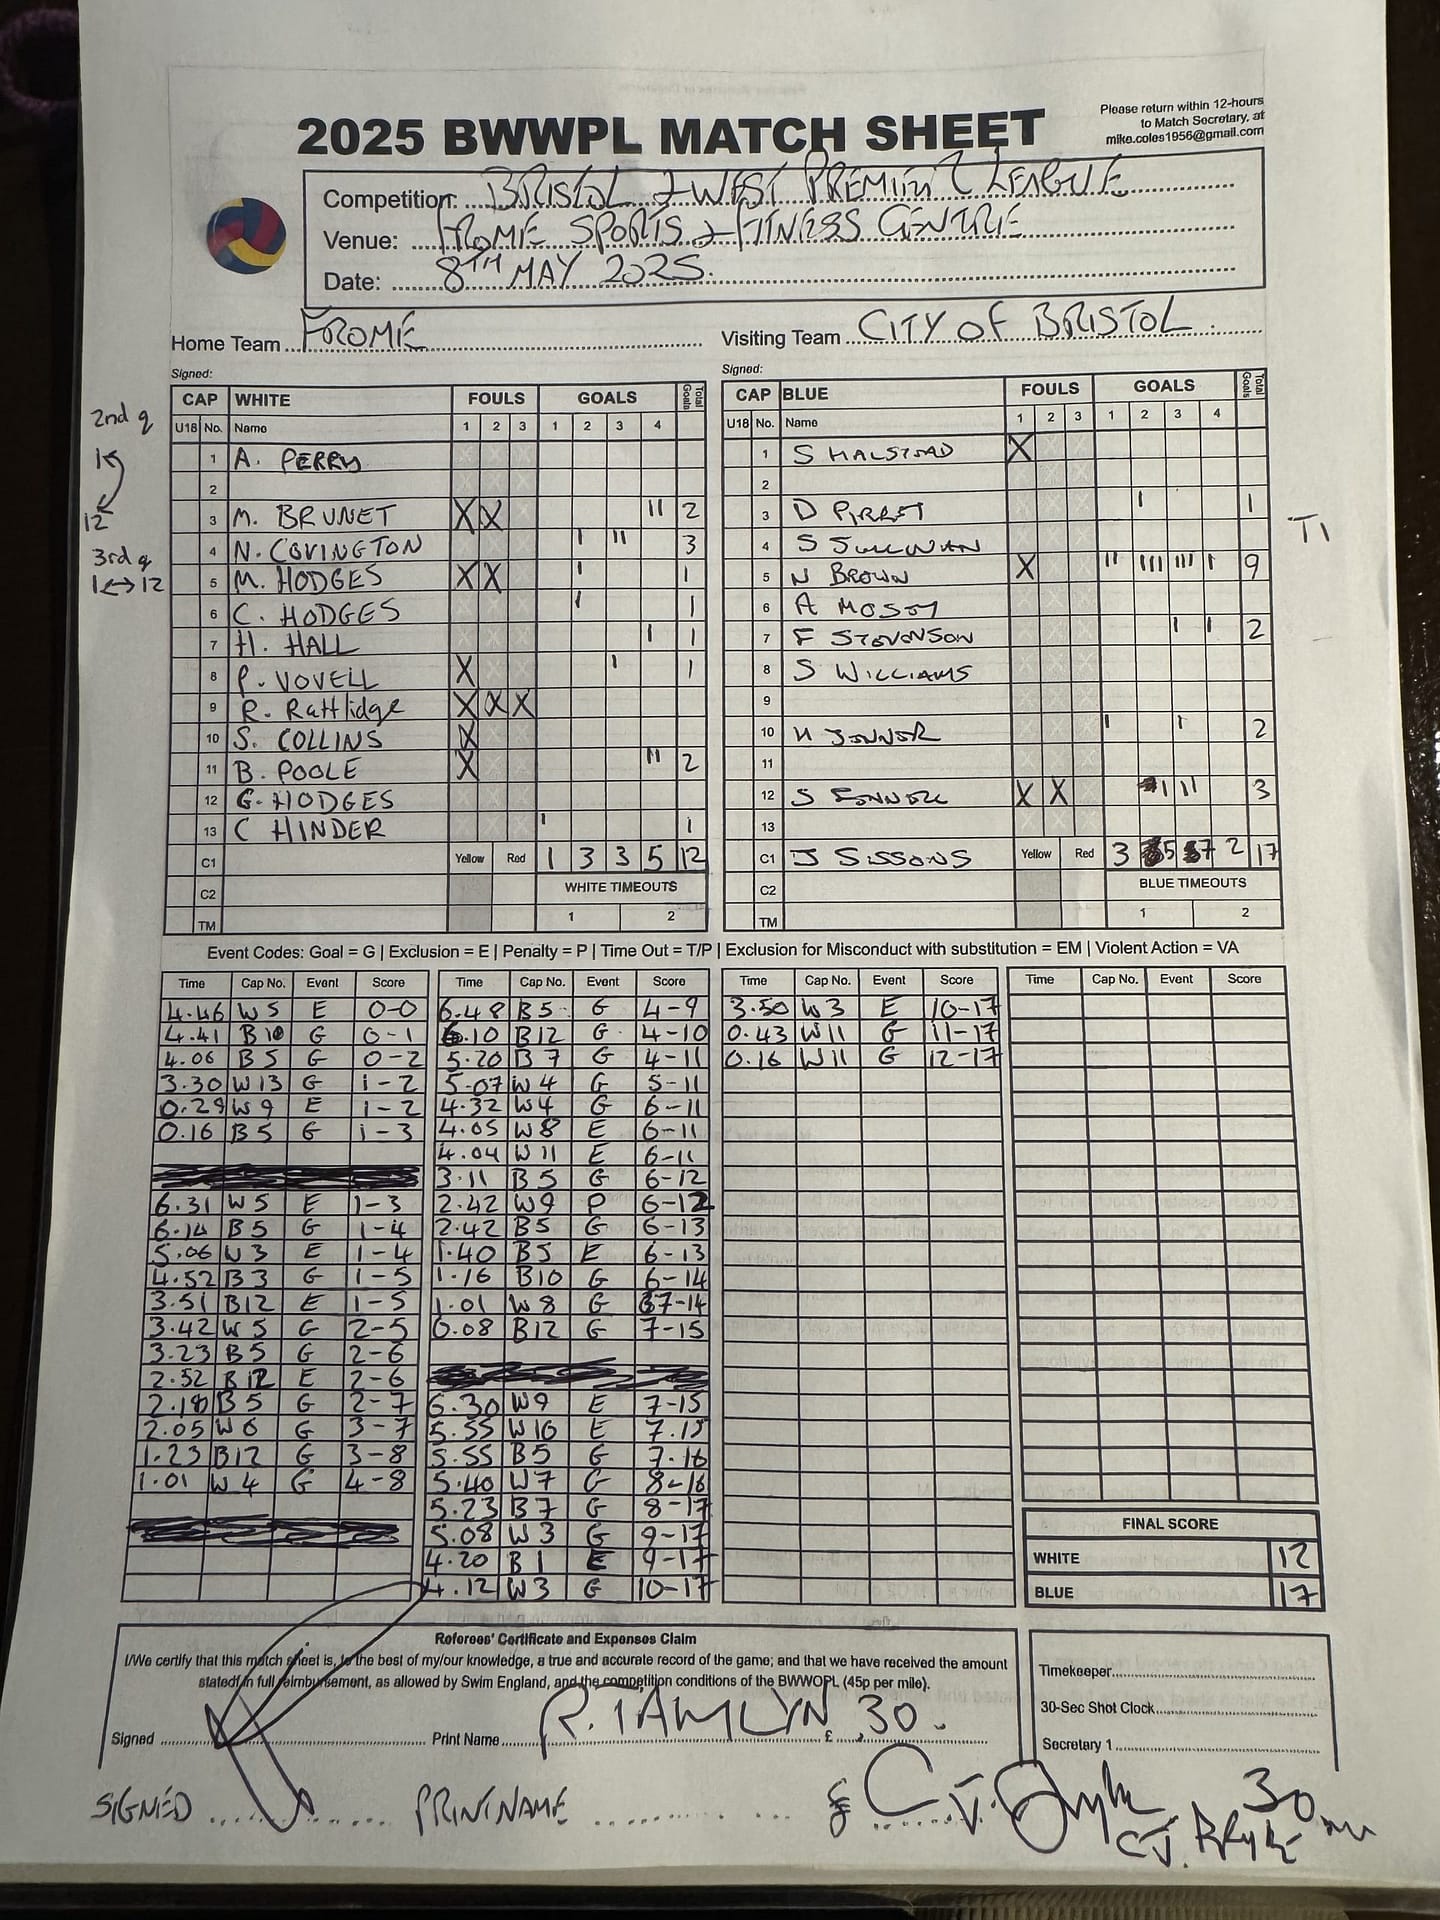 2025 BWWPL MATCH SHEET
Please return within 12-hours
to Match Secretary, at
mike.coles1956@gmail.com
Competition: BRISTOL & WEST PREMIER LEAGUE
Venue: FROME SPORTS & FITNESS CENTRE
Date: 8TH MAY 2025.
Home Team FROME
Visiting Team CITY OF BRISTOL
Signed:
Signed:
CAP WHITE FOULS GOALS Total Goals
U18 No. Name 1 2 3 1 2 3 4
1 A. PERRY
2
3 M. BRUNET X X II 2
4 N. COVINGTON I II 3
5 M. HODGES X X I 1
6 C. HODGES I 1
7 H. HALL I 1
8 P. VOVELL X I 1
9 R. Rattlidge X X X
10 S. COLLINS X
11 B. POOLE X II 2
12 G. HODGES
13 C HINDER I 1
C1 Yellow Red 1 3 3 5 12
C2 WHITE TIMEOUTS
TM 1 2
2nd q
1
12
3rd q
1 ↔ 12
CAP BLUE FOULS GOALS Total Goals
U18 No. Name 1 2 3 1 2 3 4
1 S HALSTEAD X
2
3 D PIRRET I 1
4 S SULLIVAN
5 N BROWN X II IIII III I 9
6 A
7 F STEVENSON I I 2
8 S WILLIAMS
9
10 H JENNER I I 2
11
12 S X X I II 3
13
C1 J SISSONS Yellow Red 3 5 7 2 17
C2 BLUE TIMEOUTS
TM 1 2
T1
Event Codes: Goal = G | Exclusion = E | Penalty = P | Time Out = T/P | Exclusion for Misconduct with substitution = EM | Violent Action = VA
Time Cap No. Event Score
4.46 W5 E 0-0
4.41 B10 G 0-1
4.06 B5 G 0-2
3.30 W13 G 1-2
0.29 W9 E 1-2
0.16 B5 G 1-3
6.31 W5 E 1-3
6.14 B5 G 1-4
5.06 W3 E 1-4
4.52 B3 G 1-5
3.51 B12 E 1-5
3.42 W5 G 2-5
3.23 B5 G 2-6
2.52 B12 E 2-6
2.18 B5 G 2-7
2.05 W6 G 3-7
1.23 B12 G 3-8
1.01 W4 G 4-8
Time Cap No. Event Score
6.48 B5 G 4-9
6.10 B12 G 4-10
5.20 B7 G 4-11
5.07 W4 G 5-11
4.32 W4 G 6-11
4.05 W8 E 6-11
4.04 W11 E 6-11
3.11 B5 G 6-12
2.42 W9 P 6-12
2.42 B5 G 6-13
1.40 B5 E 6-13
1.16 B10 G 6-14
1.01 W8 G 7-14
0.08 B12 G 7-15
6.30 W9 E 7-15
5.55 W10 E 7.15
5.55 B5 G 7-16
5.40 W7 G 8-16
5.23 B7 G 8-17
5.08 W3 G 9-17
4.20 B1 E 9-17
4.12 W3 G 10-17
Time Cap No. Event Score
3.50 W3 E 10-17
0.43 W11 G 11-17
0.16 W11 G 12-17
Time Cap No. Event Score
FINAL SCORE
WHITE 12
BLUE 17
Referees' Certificate and Expenses Claim
I/We certify that this match sheet is, to the best of my/our knowledge, a true and accurate record of the game; and that we have received the amount
stated in full reimbursement, as allowed by Swim England, and the competition conditions of the BWWOPL (45p per mile).
Signed Print Name R. TAMLYN £ 30.
Timekeeper
30-Sec Shot Clock
Secretary 1
SIGNED PRINT NAME £ 30